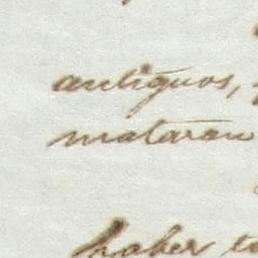 antiguos,
mataran
haber